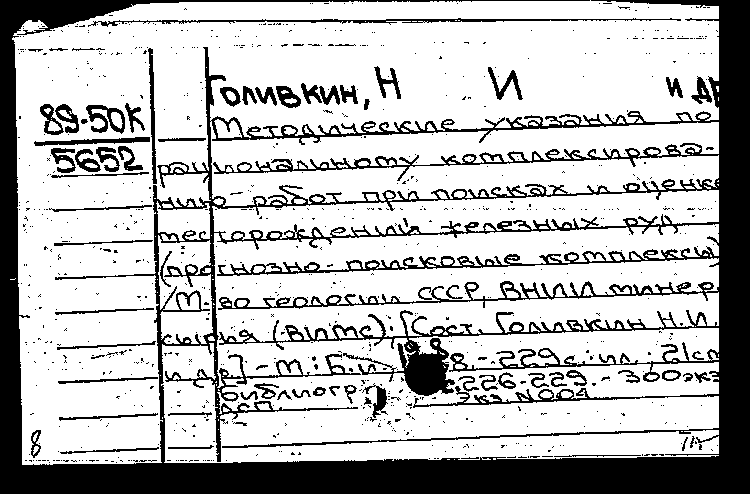 Голивкин, Н И и др
89-50К
5652
Методические указания по
рациональному комплексирова-
нию работ при поисках и оценке
месторождений железных руд
(прогнозно-поисковые комплексы)
/М-во геологии СССР, ВНИИ минер.
сырья (ВИМС); [Сост. Голивкин Н.И.
и др.] - М.: Б.и., 1988. - 229 с.: ил.; 21 см
Библиогр с.226-229. - 300 экз
ДСП. Экз. N 004
8